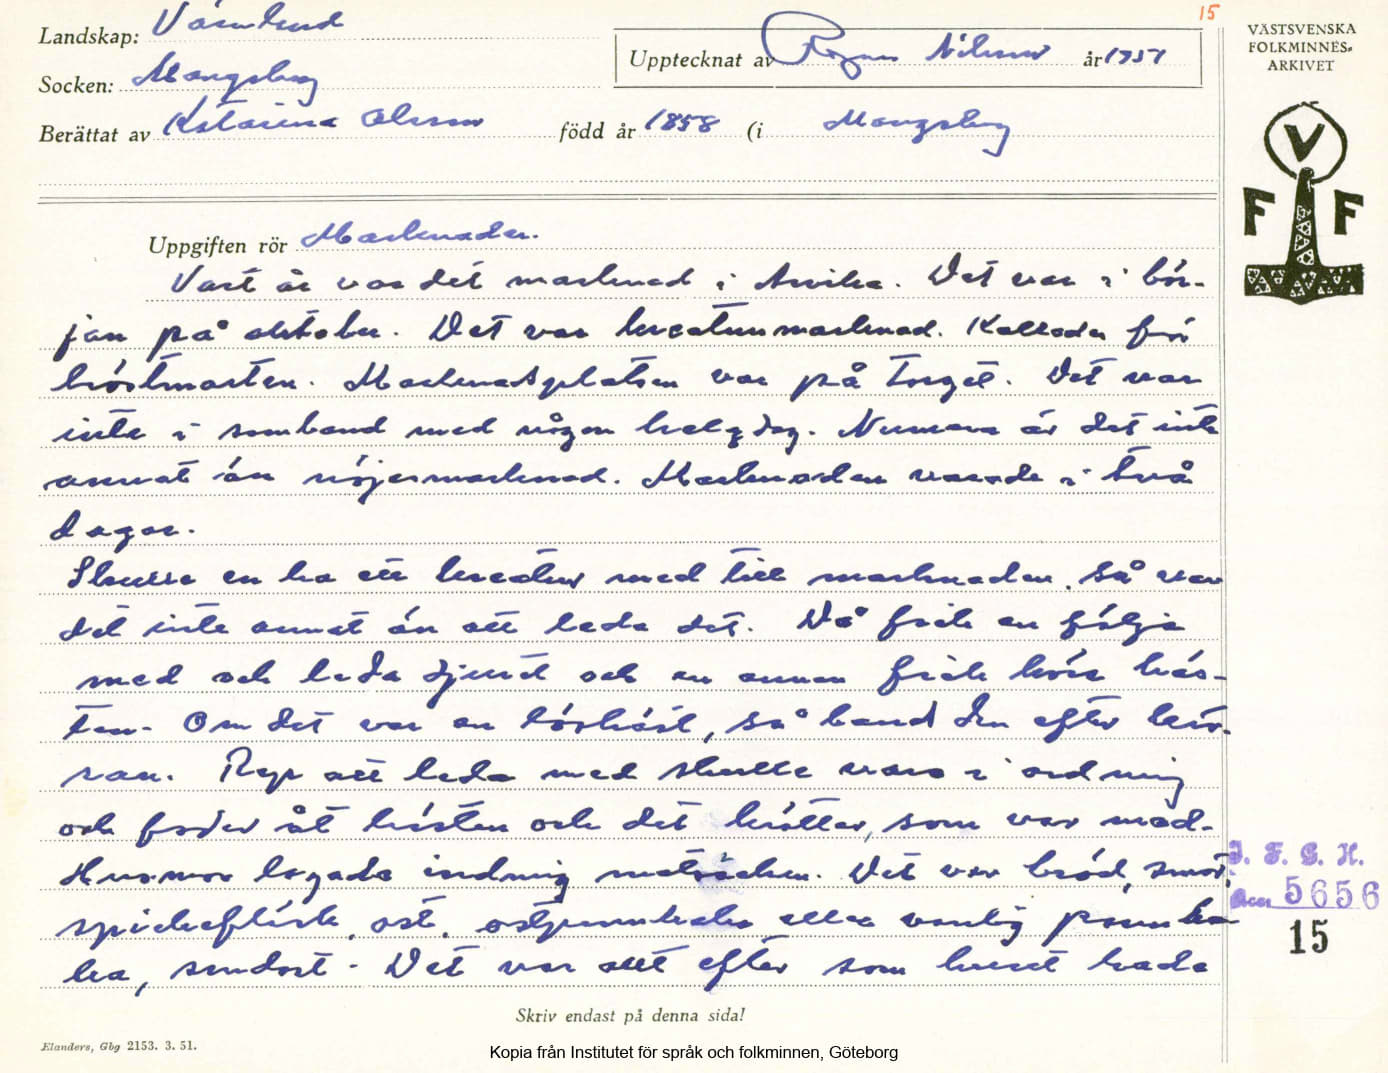 15
Landskap: Värmland
Upptecknat av Ragnar Nilsson år 1951
Socken: Mangskog
Berättat av Katarina Olsson född år 1858 (i Mangskog
VÄSTSVENSKA
FOLKMINNES-
ARKIVET
V
F F
Uppgiften rör Marknader.
Vart år var det marknad i Arvika. Det var i bör-
jan på oktober. Det var kreatursmarknad. Kallades för
höstmarten. Marknadsplatsen var på torget. Det var
inte i samband med någon helgdag. Numera är det inte
annat än nöjesmarknad. Marknaden varade i två
dagar.
Skulle en ha ett kreatur med till marknaden, så var
det inte annat än att leda det. Då fick en följa
med och leda djuret och en annan fick köra häs-
ten. Om det var en löshäst, så band den efter kär-
ran. Rep att leda med skulle vara i ordning
och foder åt hästen och det krätter, som var med.
Husmor lagade iordning matsäcken. Det var bröd, smör,
spickefläsk, ost, ostpannkaka eller vanlig pannka
ka, sendost. Det var allt efter som huset hade
I. F. G. H.
Acc 5656
15
Skriv endast på denna sida!
Elanders, Gbg 2153. 3. 51.
Kopia från Institutet för språk och folkminnen, Göteborg